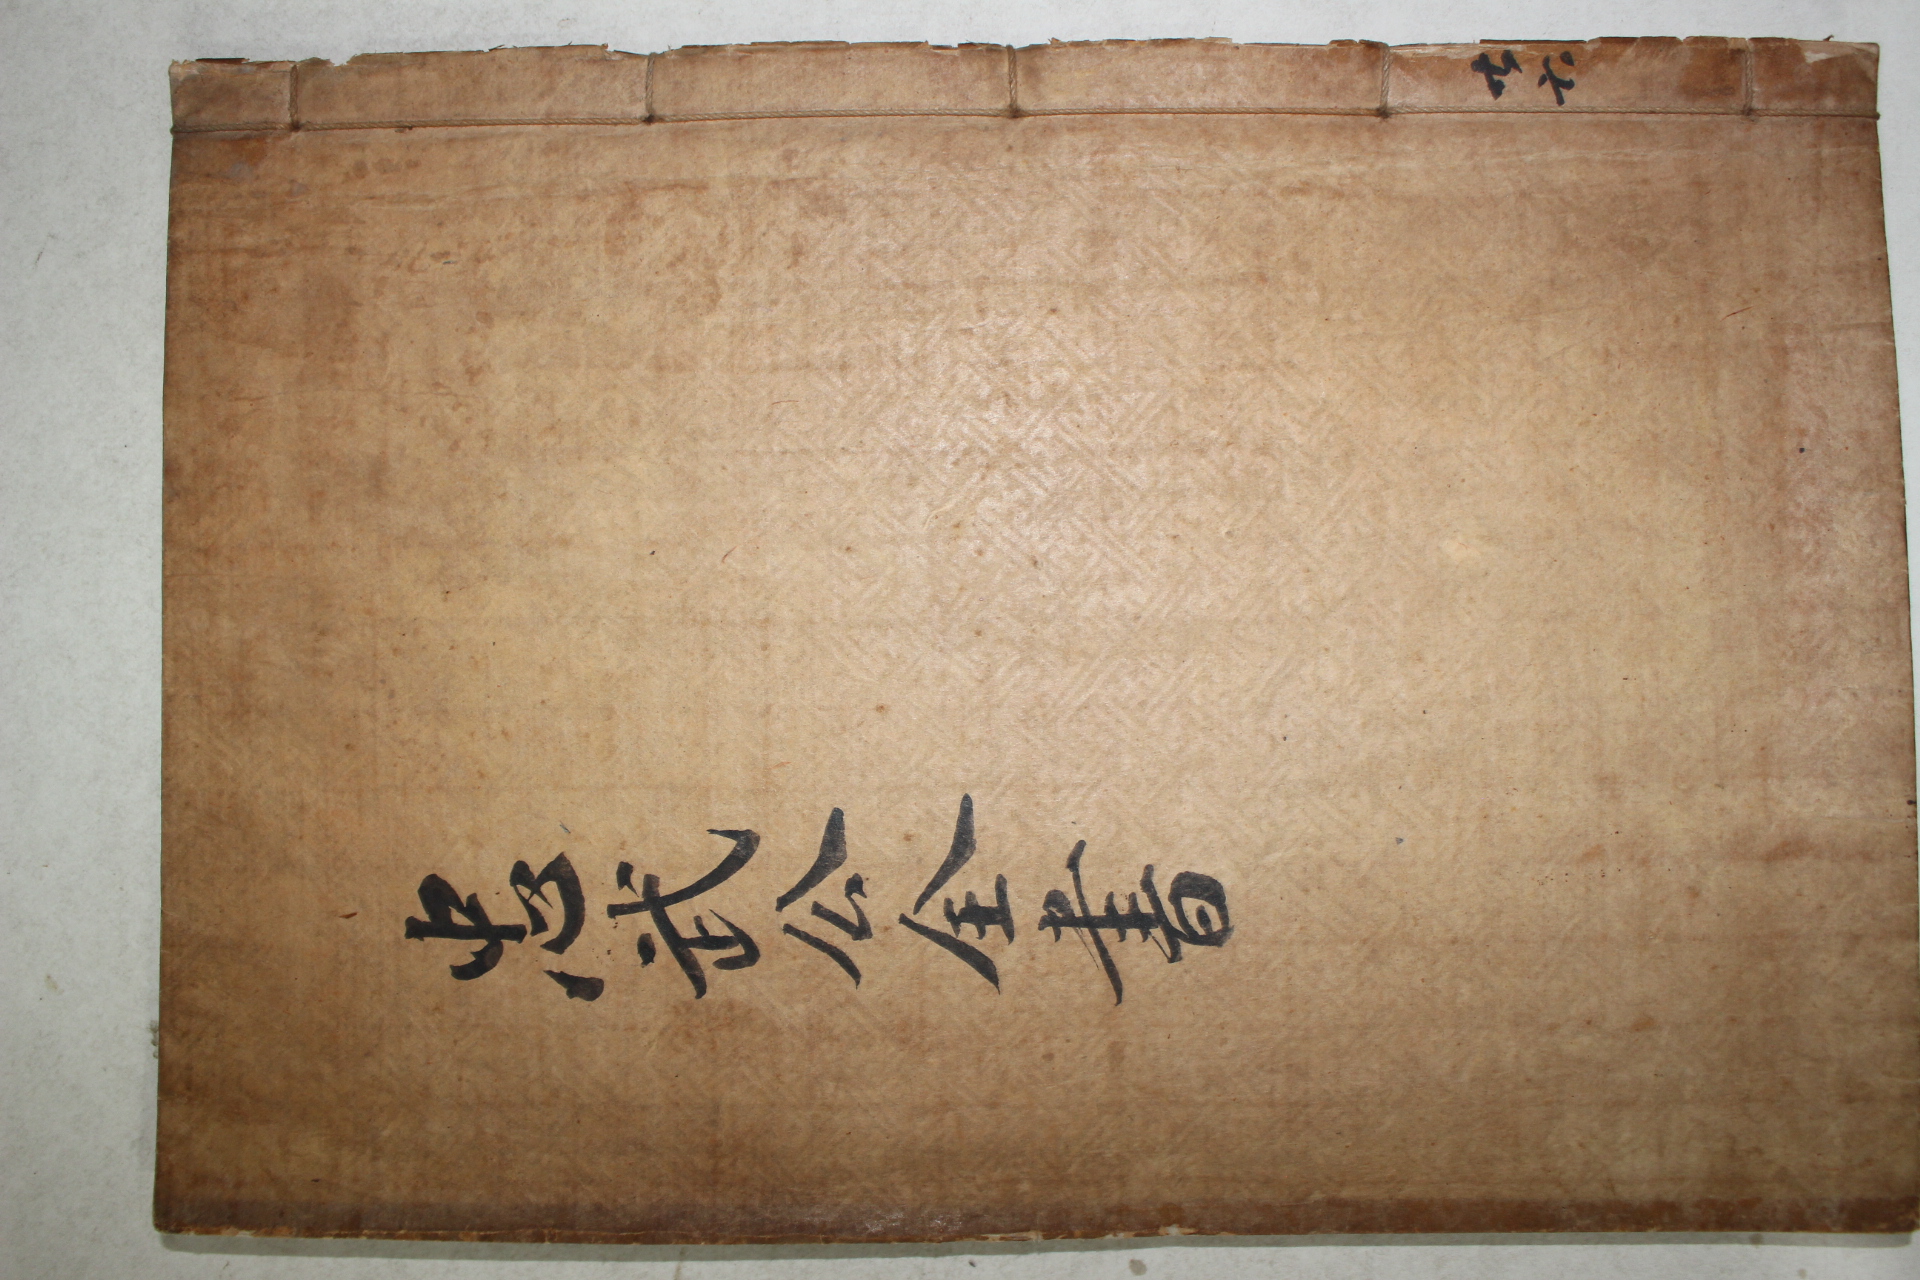 忠武公全書